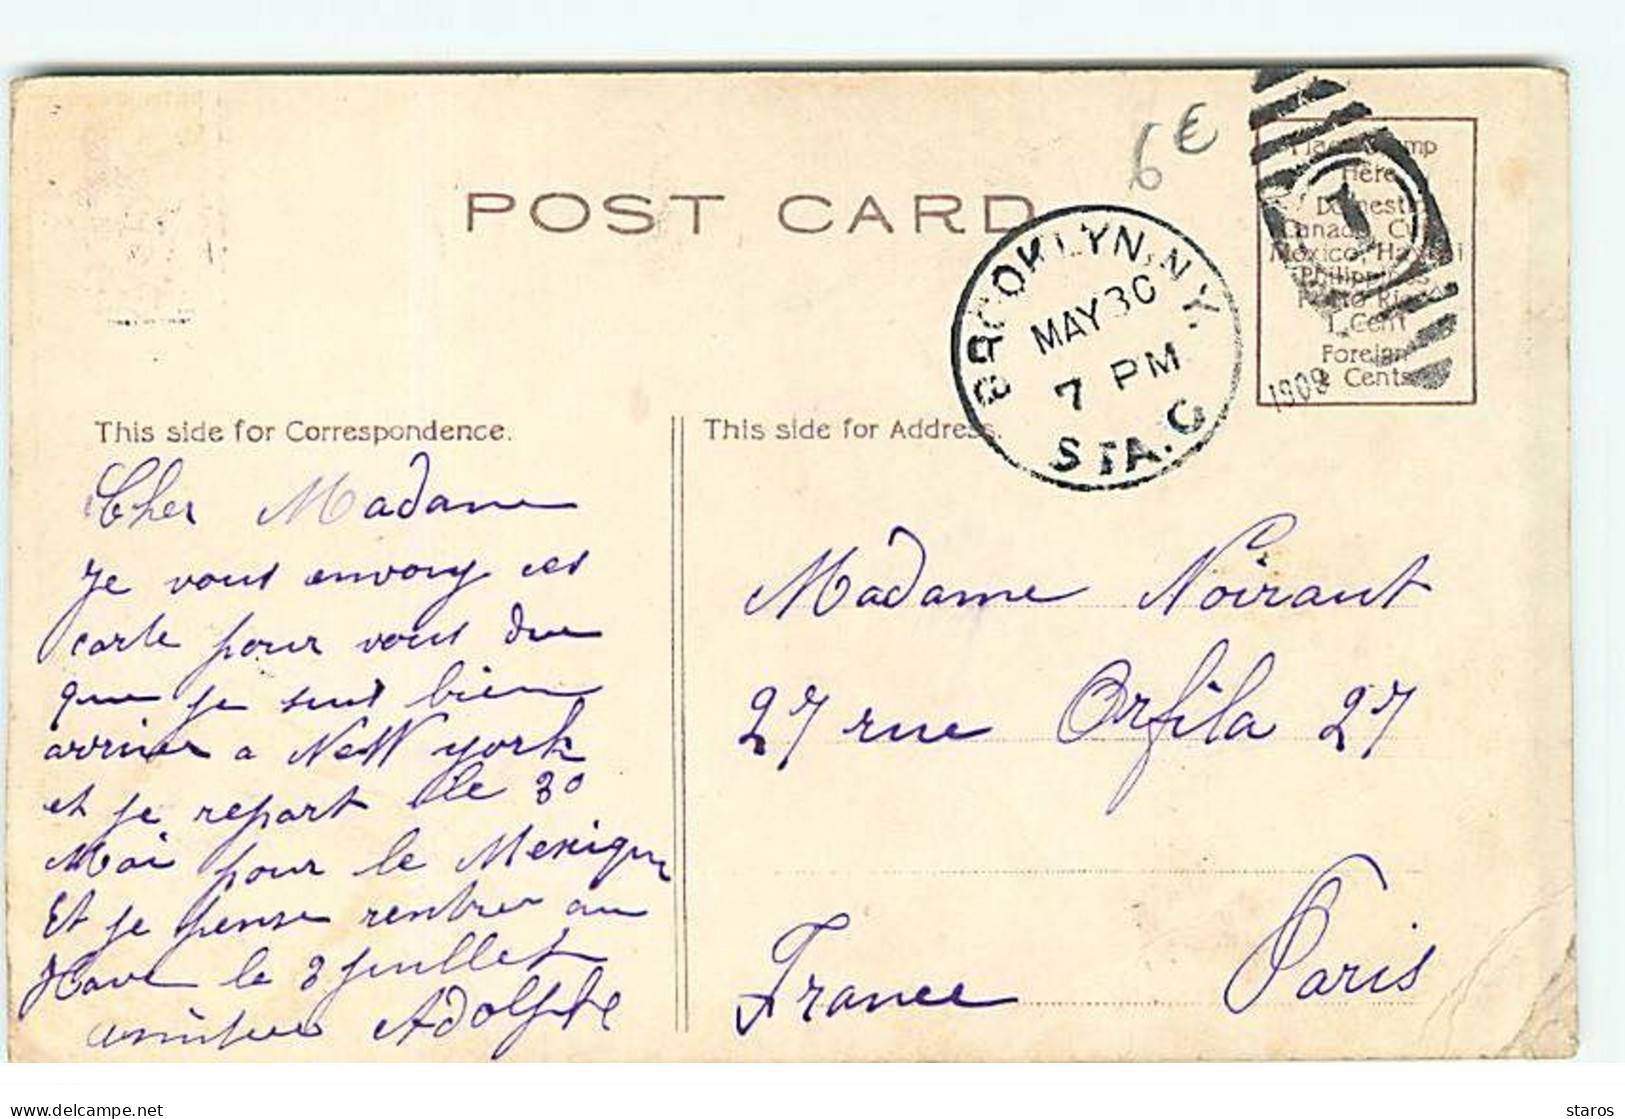 6€
POST CARD
Place Stamp
Here
Domestic
Canada, Cuba
Mexico, Hawaii
Philippines
Porto Rico
1 Cent
Foreign
2 Cents
BROOKLYN, N.Y.
MAY 30
7 PM
STA. G
1909
This side for Correspondence.
This side for Address.
Cher Madame
Je vous envoy ces
carte pour vous due
que je suis bien
arriver a NeW york
et je repart le 30
Mai pour le Mexique
Et je pense rentrer au
Havre le 3 juillet
Adolphe
Madame Noiraut
27 rue Orfila 27
France Paris
delcampe.net
staros